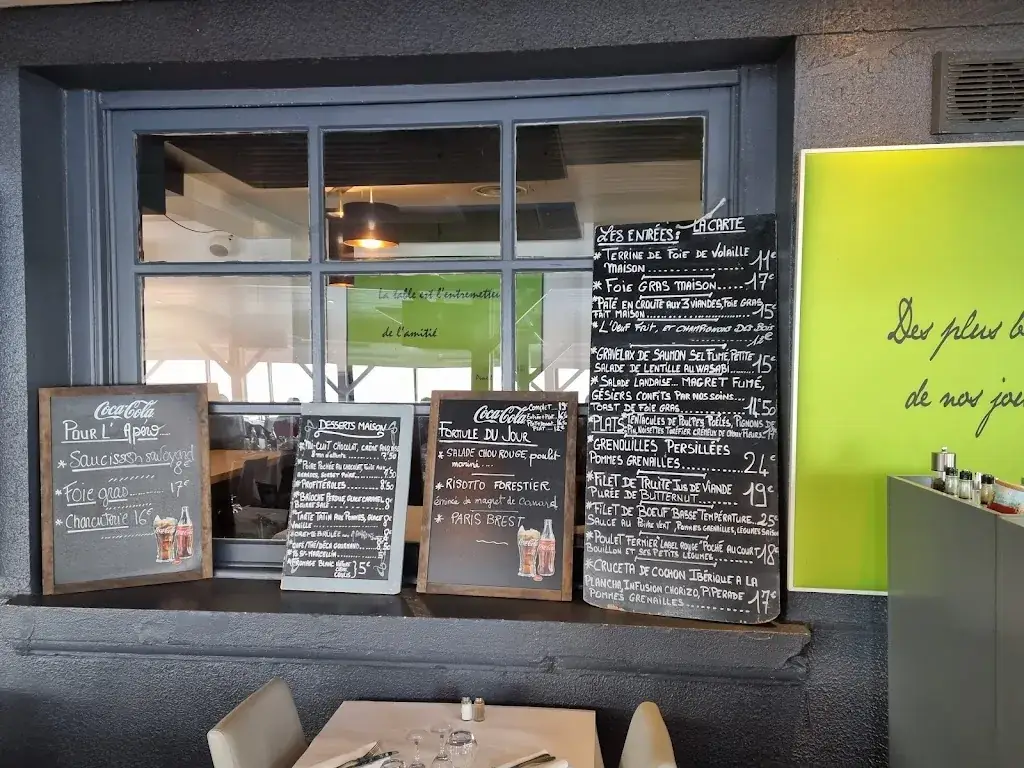 Coca-Cola
POUR L' APERO...
* Saucisson
8€
* Foie gras 17€
* Charcuterie 16€
DESSERTS MAISON
* MI-CUIT CHOCOLAT, CRÈME
7,50
* POIRE POCHÉE AU CHOCOLAT,
* PROFITEROLES
* BRIOCHE PERDUE, GLACE CARAMEL
BEURRE SALÉ
* TARTE TATIN AUX POMMES, GLACE
VANILLE
* CRÈME BRÛLÉE
* ST MARCELLIN
* FROMAGE BLANC
COULIS
5€
Coca-Cola
FORTULE DU JOUR
* SALADE CHOU ROUGE poulet
mariné....
* RISOTTO FORESTIER
émincé de magret de canard
* PARIS BREST
LA CARTE
LES ENTRÉES:
* TERRINE DE FOIE DE VOLAILLE
MAISON 11€
* FOIE GRAS MAISON 17€
* PATÉ EN CROUTE AUX 3 VIANDES, FOIE GRAS
FAIT MAISON 15€
* L'OEUF FRIT, ET CHAMPIGNONS DES BOIS
* GRAVELAX DE SAUMON SEL FUMÉ, PETITE
SALADE DE LENTILLE AU WASABI 15€
* SALADE LANDAISE... MAGRET FUMÉ,
GÉSIERS CONFITS PAR NOS SOINS...
TOAST DE FOIE GRAS
PLATS
* TENTACULES DE POULPES POÊLÉS, PIGNONS DE
PIN, NOISETTES
* GRENOUILLES PERSILLÉES
POMMES GRENAILLES 24€
* FILET DE TRUITE JUS DE VIANDE
PURÉE DE BUTTERNUT 19€
* FILET DE BOEUF BASSE TEMPÉRATURE 25€
SAUCE AU POIVRE VERT POMMES GRENAILLES, LÉGUMES SAISON
* POULET FERMIER LABEL ROUGE POCHÉ AU COURT
BOUILLON ET SES PETITS LÉGUMES 18€
* CRUCETA DE COCHON IBÉRIQUE A LA
PLANCHA INFUSION CHORIZO, PIPERADE
POMMES GRENAILLES 17€
La table est l'entremetteu
de l'amitié
Des plus b
de nos jou